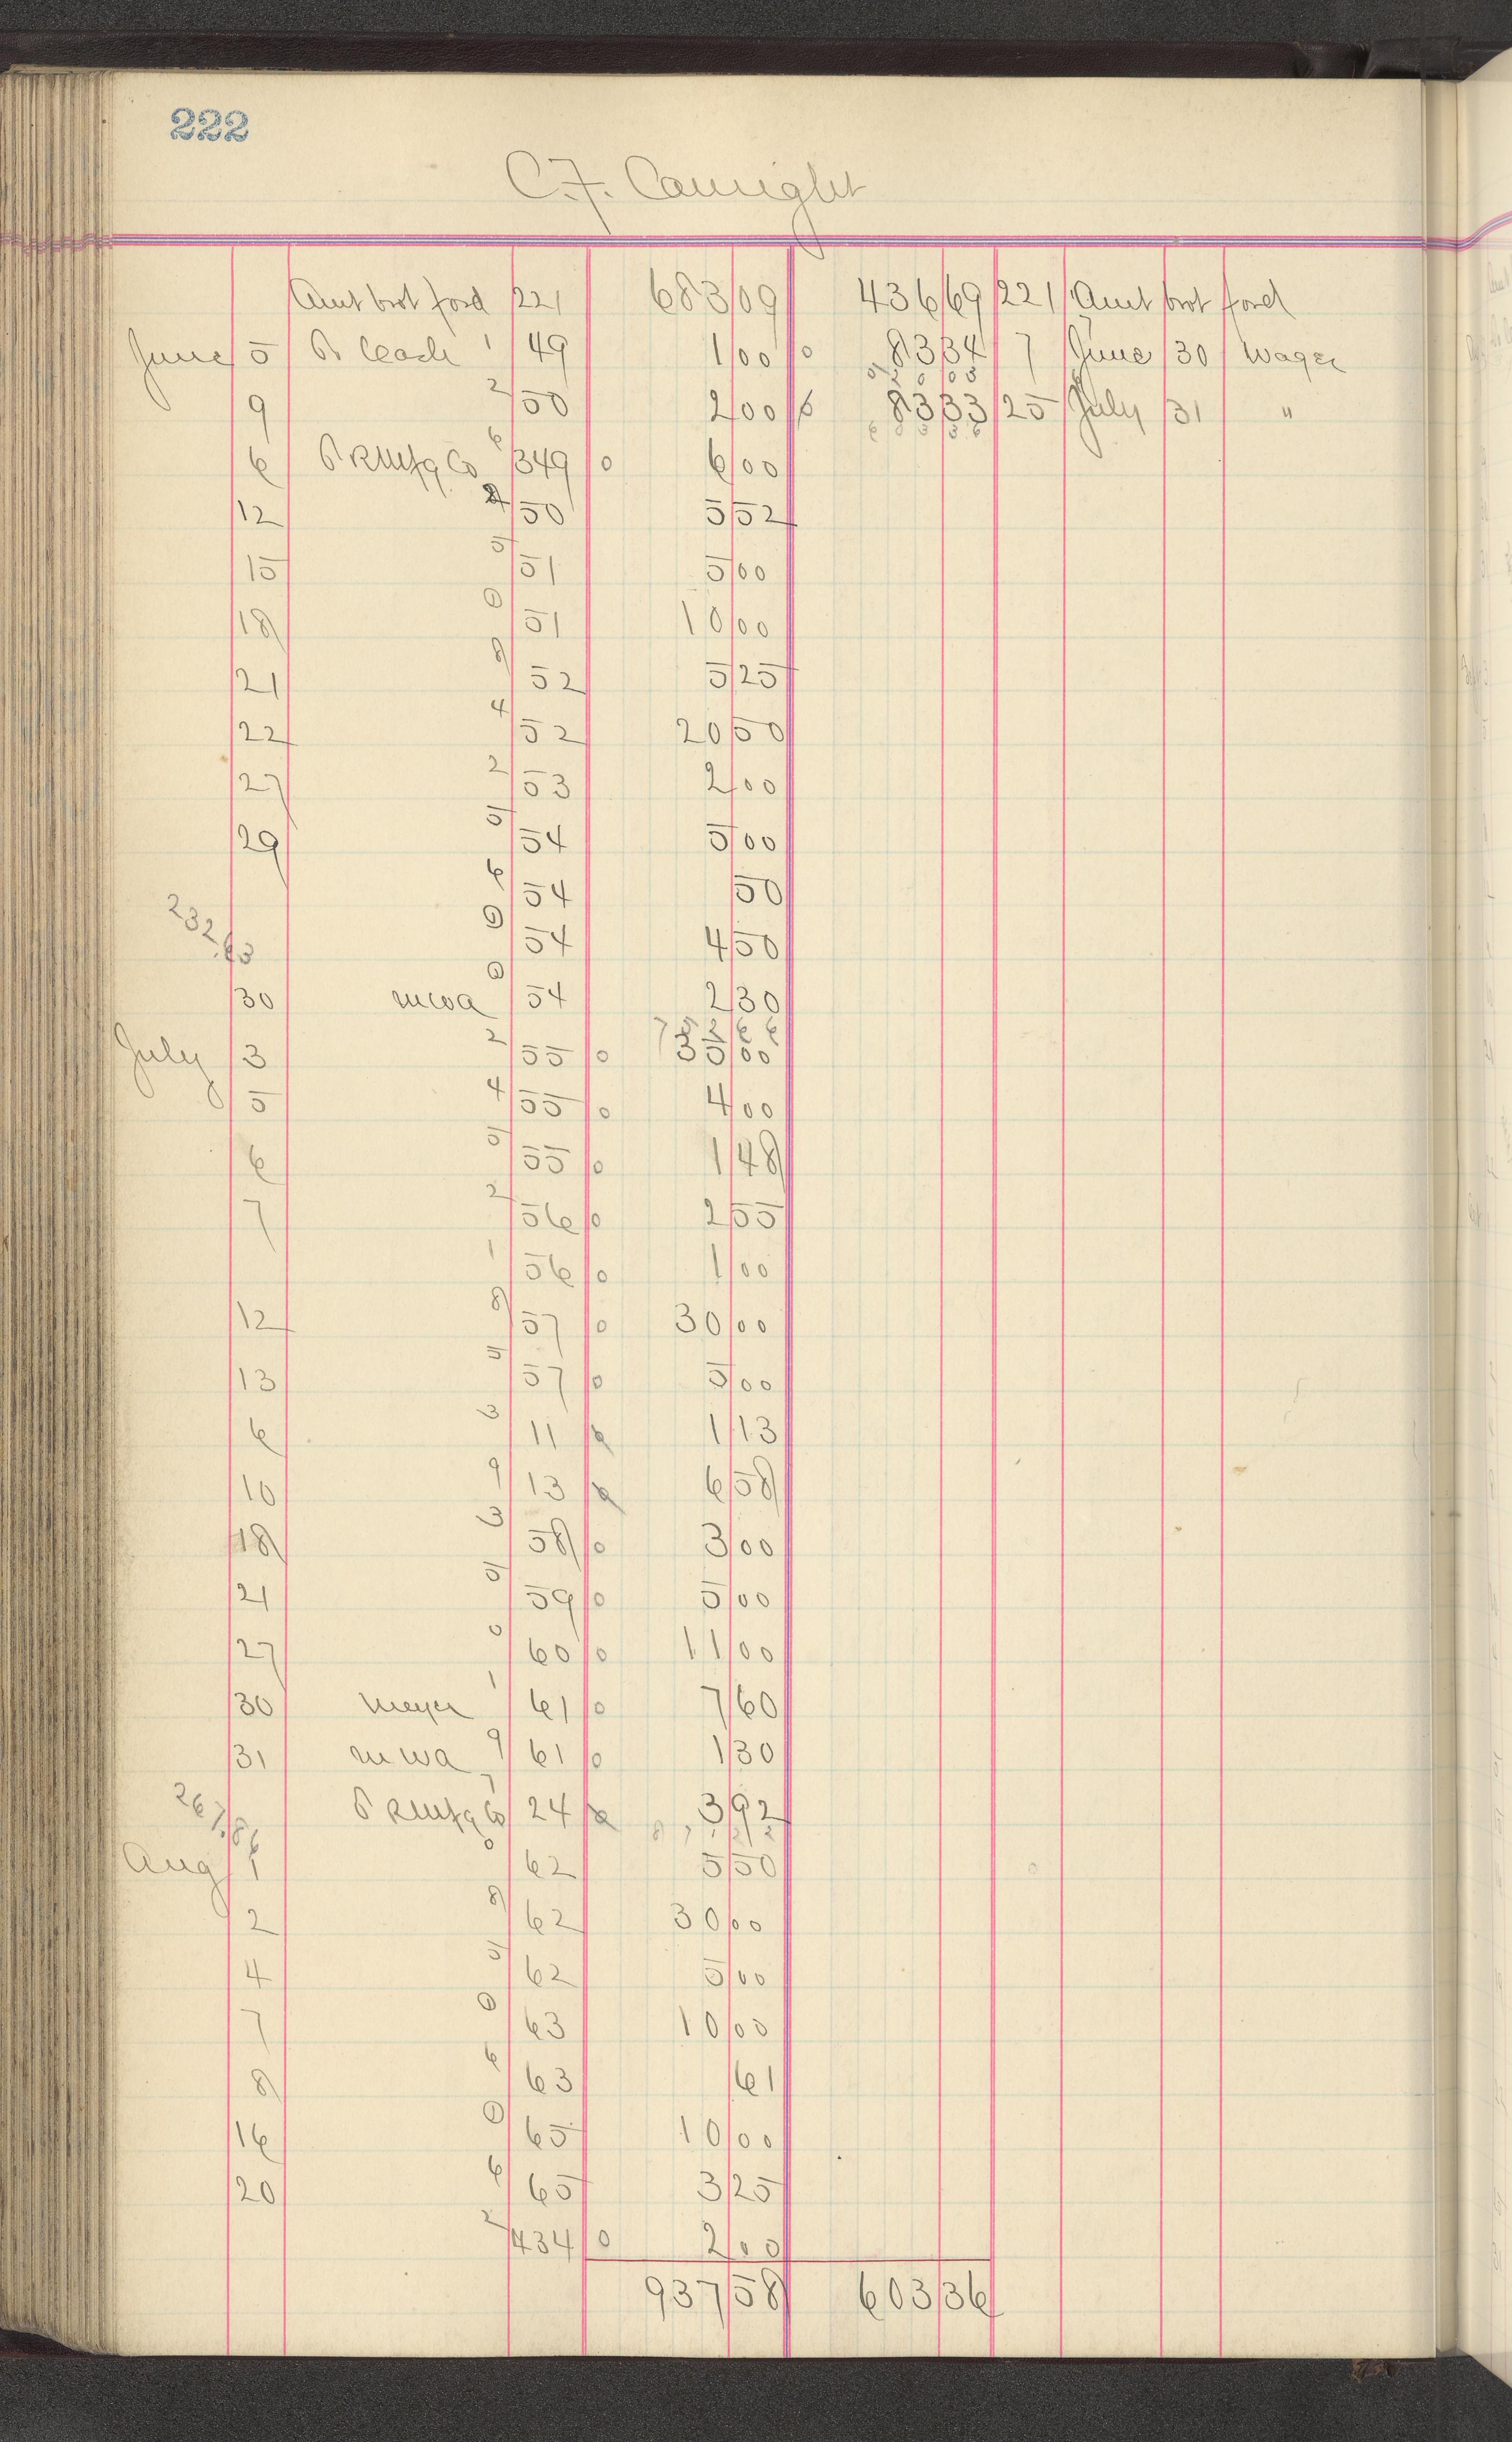 222
C.F. Camight
Amt brot ford 221 683 09 436 69 221 Amt brot ford
June 5 P. Cash 1 49 1 00 0 83 34 7 June 30 Wages
9 2 50 2 00 83 33 25 July 31 "
6 P R Mfg Co 6 349 0 6 00
12 50 5 52
15 5 51 5 00
18 0 51 10 00
21 8 52 5 25
22 4 52 20 50
27 2 53 2 00
29 5 54 5 00
6 54 50
232.63 0 54 4 50
30 mwa 0 54 2 30
732 66
July 3 2 55 0 35 00
5 4 55 0 4 00
6 5 55 0 1 48
7 2 56 0 2 55
1 56 0 1 00
12 8 57 0 30 00
13 5 57 0 5 00
6 3 11 1 13
10 9 13 6 58
18 3 58 0 3 00
21 5 59 0 5 00
27 0 60 0 11 00
30 Meyer 1 61 0 7 60
31 mwa 9 61 0 1 30
267.86 P R Mfg Co 7 24 3 92
8 7 1 2 2
Aug 1 0 62 5 50
2 8 62 30 00
4 5 62 5 00
7 0 63 10 00
8 6 63 61
16 0 65 10 00
20 6 65 3 25
2 434 0 2 00
937 58 603 36